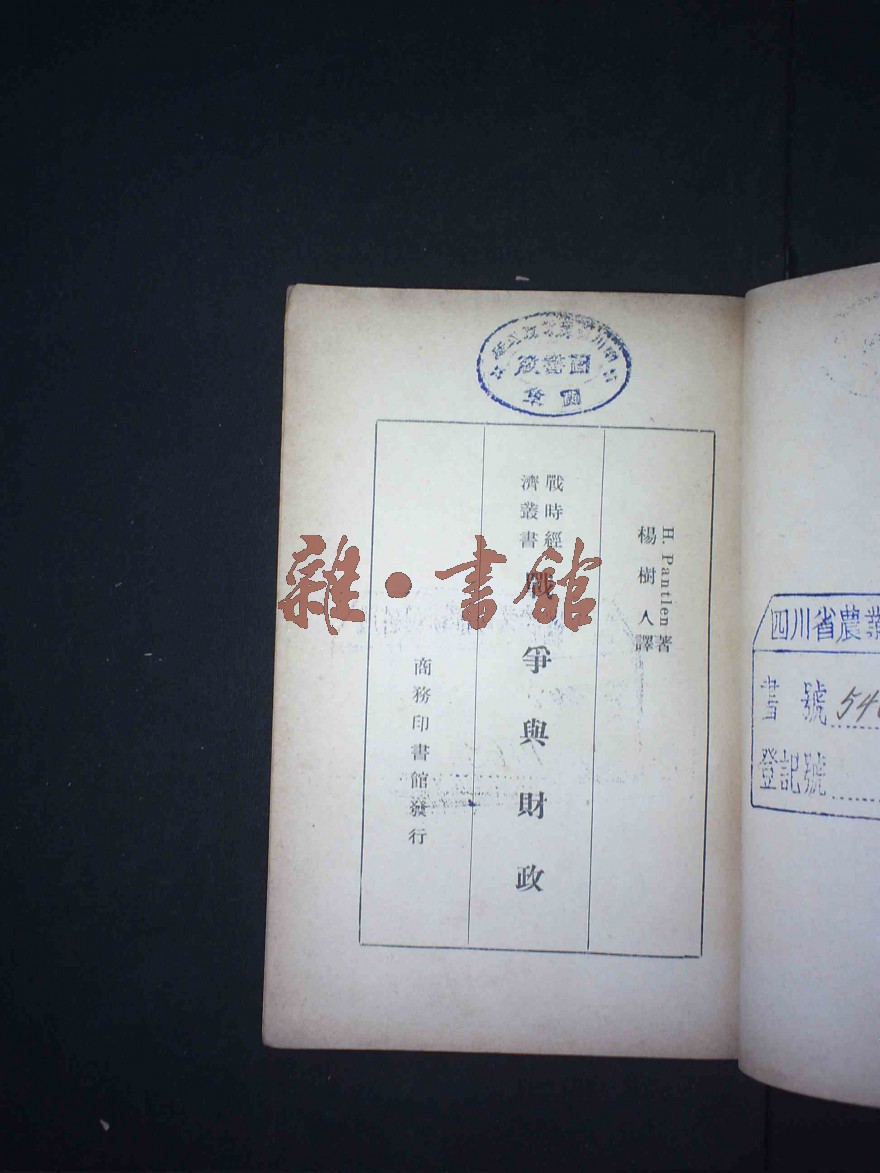 圖書徵
H. Pantlen 著
楊樹人譯
戰時經
濟叢書
戰爭與財政
商務印書館發行
雜·書館
四川省農業
書號 54
登記號